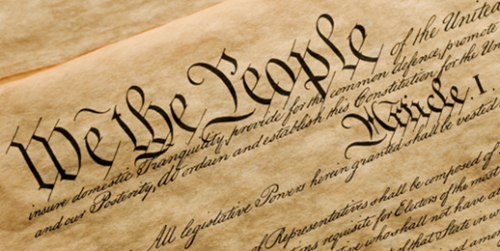 We the People of the United
insure domestic Tranquility, provide for the common defence, promote
and our Posterity, do ordain and establish this Constitution for the Uni
Article. I.
All legislative Powers herein granted shall be vested
of Representatives shall be composed of
requisite for Electors of the most
who shall not have a
that State in